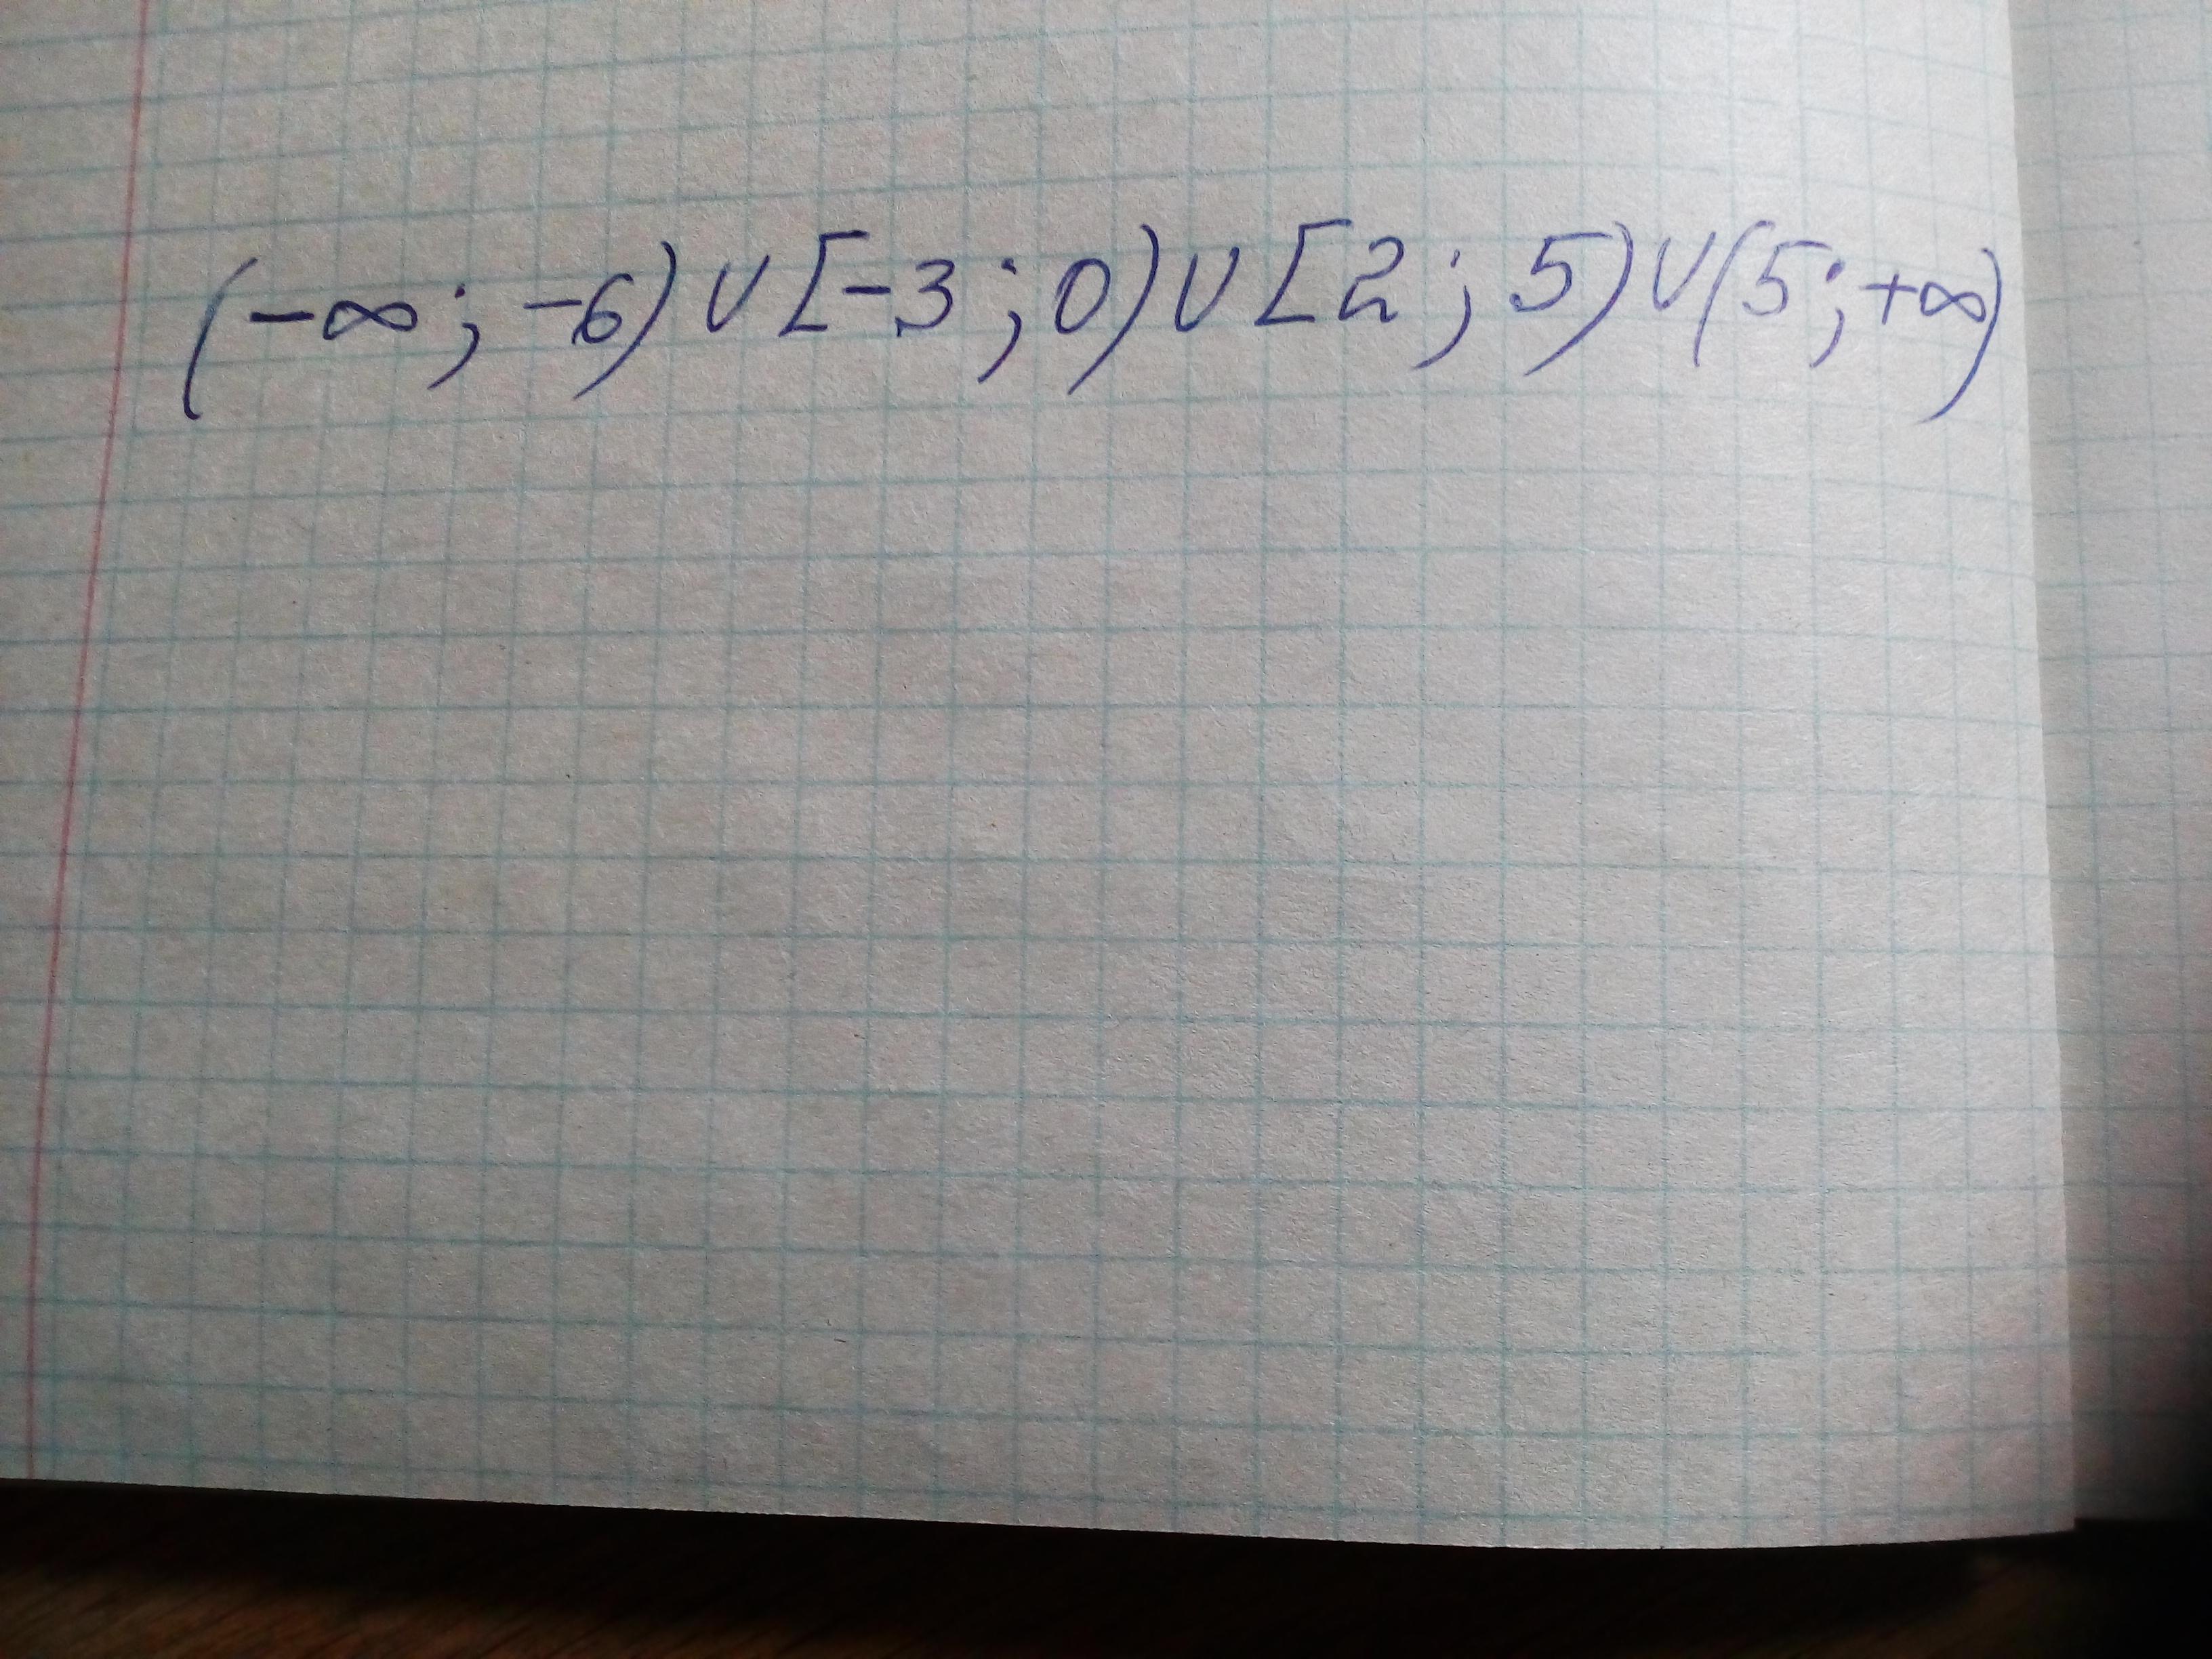 (-∞; -6) ∪ [-3; 0) ∪ [2; 5) ∪ (5; +∞)